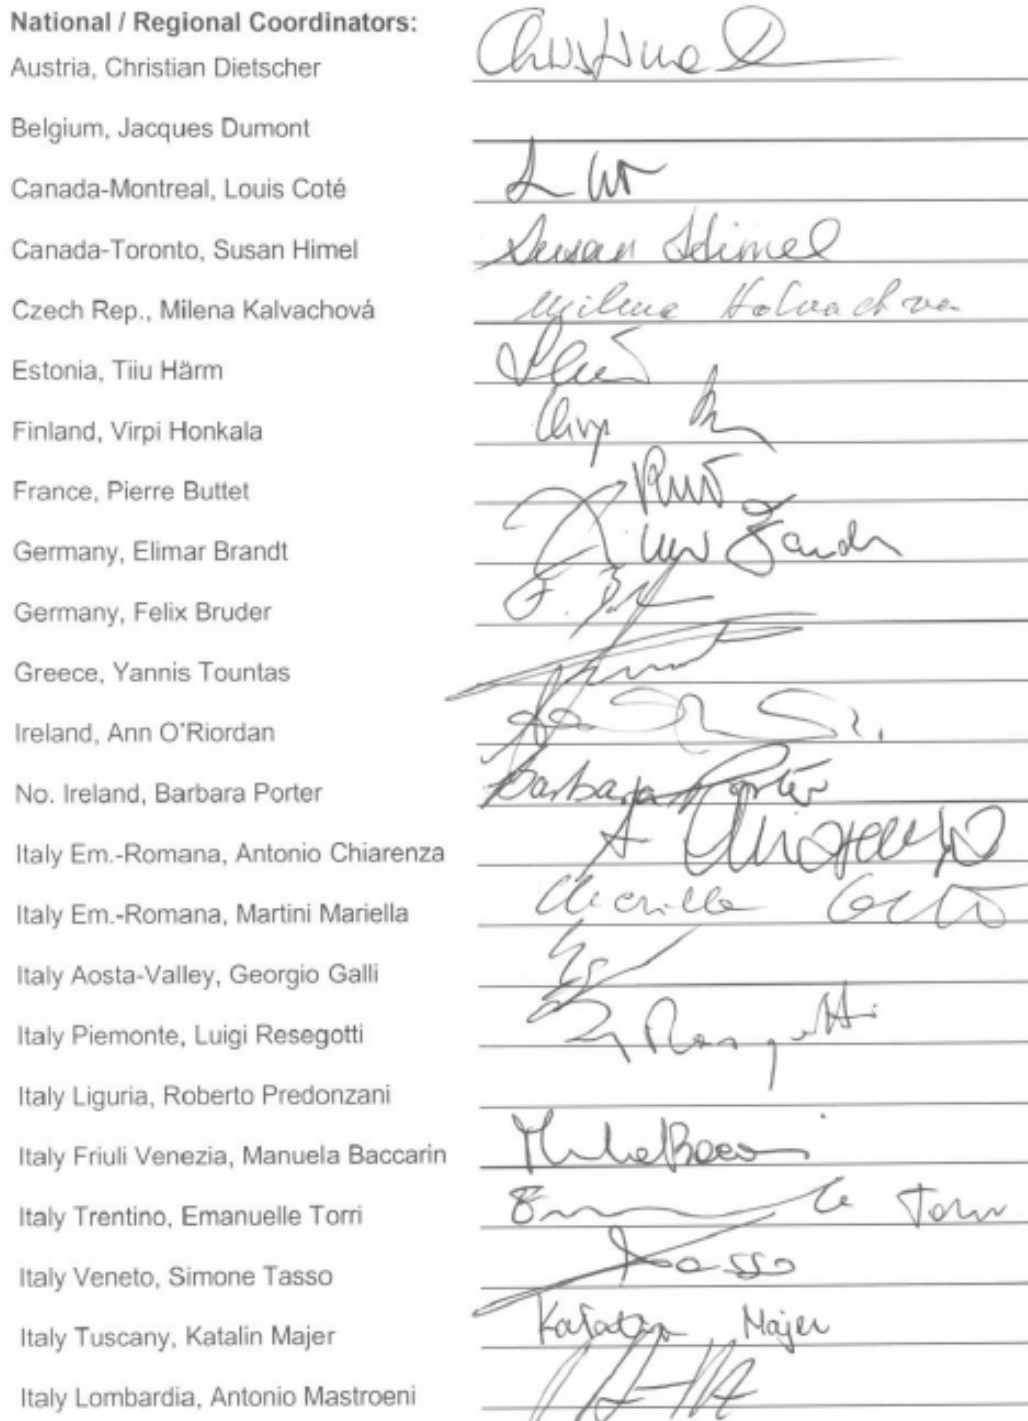 National / Regional Coordinators:
Austria, Christian Dietscher
Belgium, Jacques Dumont
Canada-Montreal, Louis Coté
Canada-Toronto, Susan Himel Susan Himel
Czech Rep., Milena Kalvachová Milena Kalvachova
Estonia, Tiiu Härm
Finland, Virpi Honkala
France, Pierre Buttet
Germany, Elimar Brandt
Germany, Felix Bruder
Greece, Yannis Tountas
Ireland, Ann O'Riordan
No. Ireland, Barbara Porter Barbara Porter
Italy Em.-Romana, Antonio Chiarenza A Chiarenza
Italy Em.-Romana, Martini Mariella
Italy Aosta-Valley, Georgio Galli
Italy Piemonte, Luigi Resegotti
Italy Liguria, Roberto Predonzani
Italy Friuli Venezia, Manuela Baccarin
Italy Trentino, Emanuelle Torri
Italy Veneto, Simone Tasso Tasso
Italy Tuscany, Katalin Majer Katalin Majer
Italy Lombardia, Antonio Mastroeni